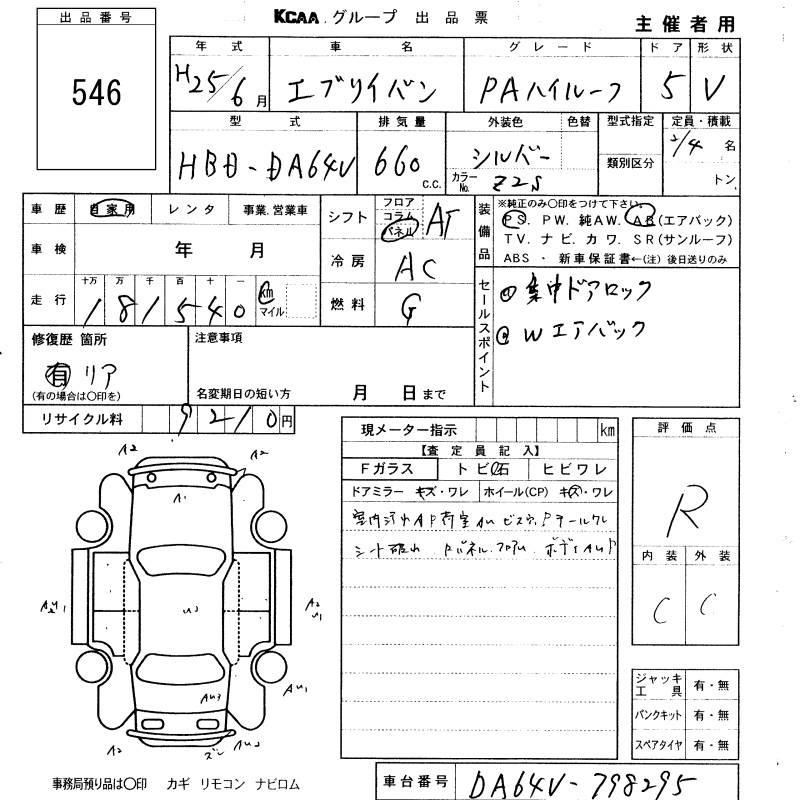 出品番号
KCAA グループ 出品票
主催者用
546
年式 車名 グレード ドア 形状
H25/6月 エブリイバン PAハイルーフ 5 V
型式 排気量 外装色 色替 型式指定 定員・積載
HBD-DA64V 660 C.C. シルバー カラーNo. Z2S 類別区分 2/4名 トン
車歴 自家用 レンタ 事業.営業車
シフト フロア コラム パネル AT
装備品 ※純正のみ○印をつけて下さい。
PS. PW. 純AW. AB(エアバック)
TV. ナビ. カワ. SR(サンルーフ)
ABS ・ 新車保証書←(注) 後日送りのみ
車検 年 月
冷房 AC
走行 十万 万 千 百 十 一
181540 km マイル
燃料 G
セールスポイント
集中ドアロック
Wエアバック
修復歴 箇所
有 リア
(有の場合は○印を)
注意事項
名変期日の短い方 月 日まで
リサイクル料 9210円
現メーター指示 km
【査定員記入】
Fガラス トビ石 ヒビワレ
ドアミラー キズ・ワレ ホイール(CP) キズ・ワレ
シート破れ
評価点
R
内装 外装
C C
A2 A2
A1
U2
A2
U1
AU1
AU3
A2 ズレ AU2
ジャッキ工具 有・無
パンクキット 有・無
スペアタイヤ 有・無
事務局預り品は○印 カギ リモコン ナビロム
車台番号 DA64V-798295